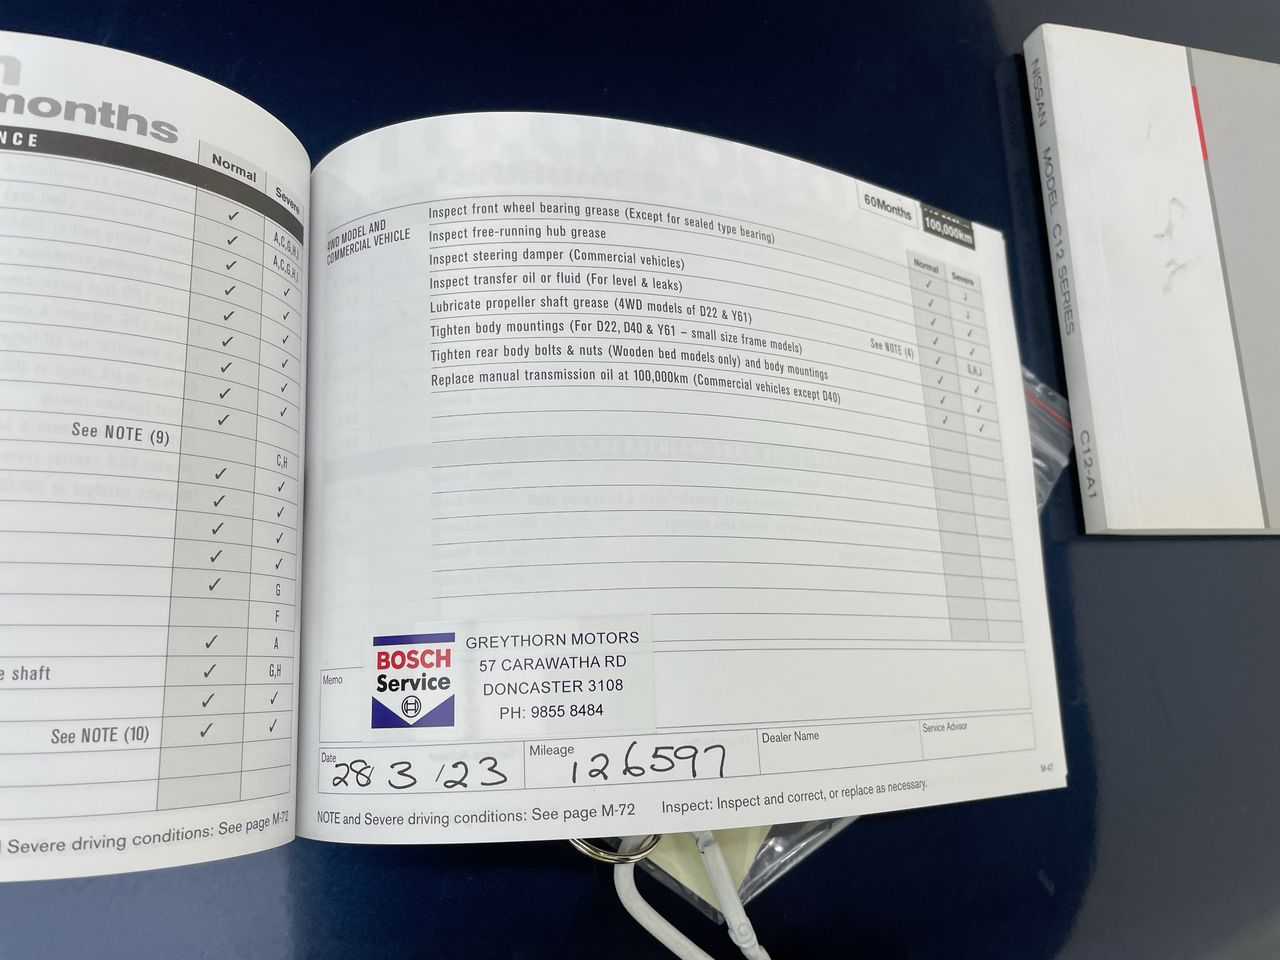 months
NCE
Normal
Severe
A,C,G,H,I
A,C,G,H,I
See NOTE (9)
C,H
G
F
A
e shaft
G,H
See NOTE (10)
Severe driving conditions: See page M-72
60Months
100,000km
Normal
Severe
4WD MODEL AND
COMMERCIAL VEHICLE
Inspect front wheel bearing grease (Except for sealed type bearing)
Inspect free-running hub grease
Inspect steering damper (Commercial vehicles)
Inspect transfer oil or fluid (For level & leaks)
Lubricate propeller shaft grease (4WD models of D22 & Y61)
See NOTE (4)
G,H,J
Tighten body mountings (For D22, D40 & Y61 – small size frame models)
Tighten rear body bolts & nuts (Wooden bed models only) and body mountings
Replace manual transmission oil at 100,000km (Commercial vehicles except D40)
Memo
BOSCH
Service
GREYTHORN MOTORS
57 CARAWATHA RD
DONCASTER 3108
PH: 9855 8484
Date
28 3 /23
Mileage
126597
Dealer Name
Service Advisor
M-47
NOTE and Severe driving conditions: See page M-72
Inspect: Inspect and correct, or replace as necessary.
NISSAN MODEL C12 SERIES
C12-A1